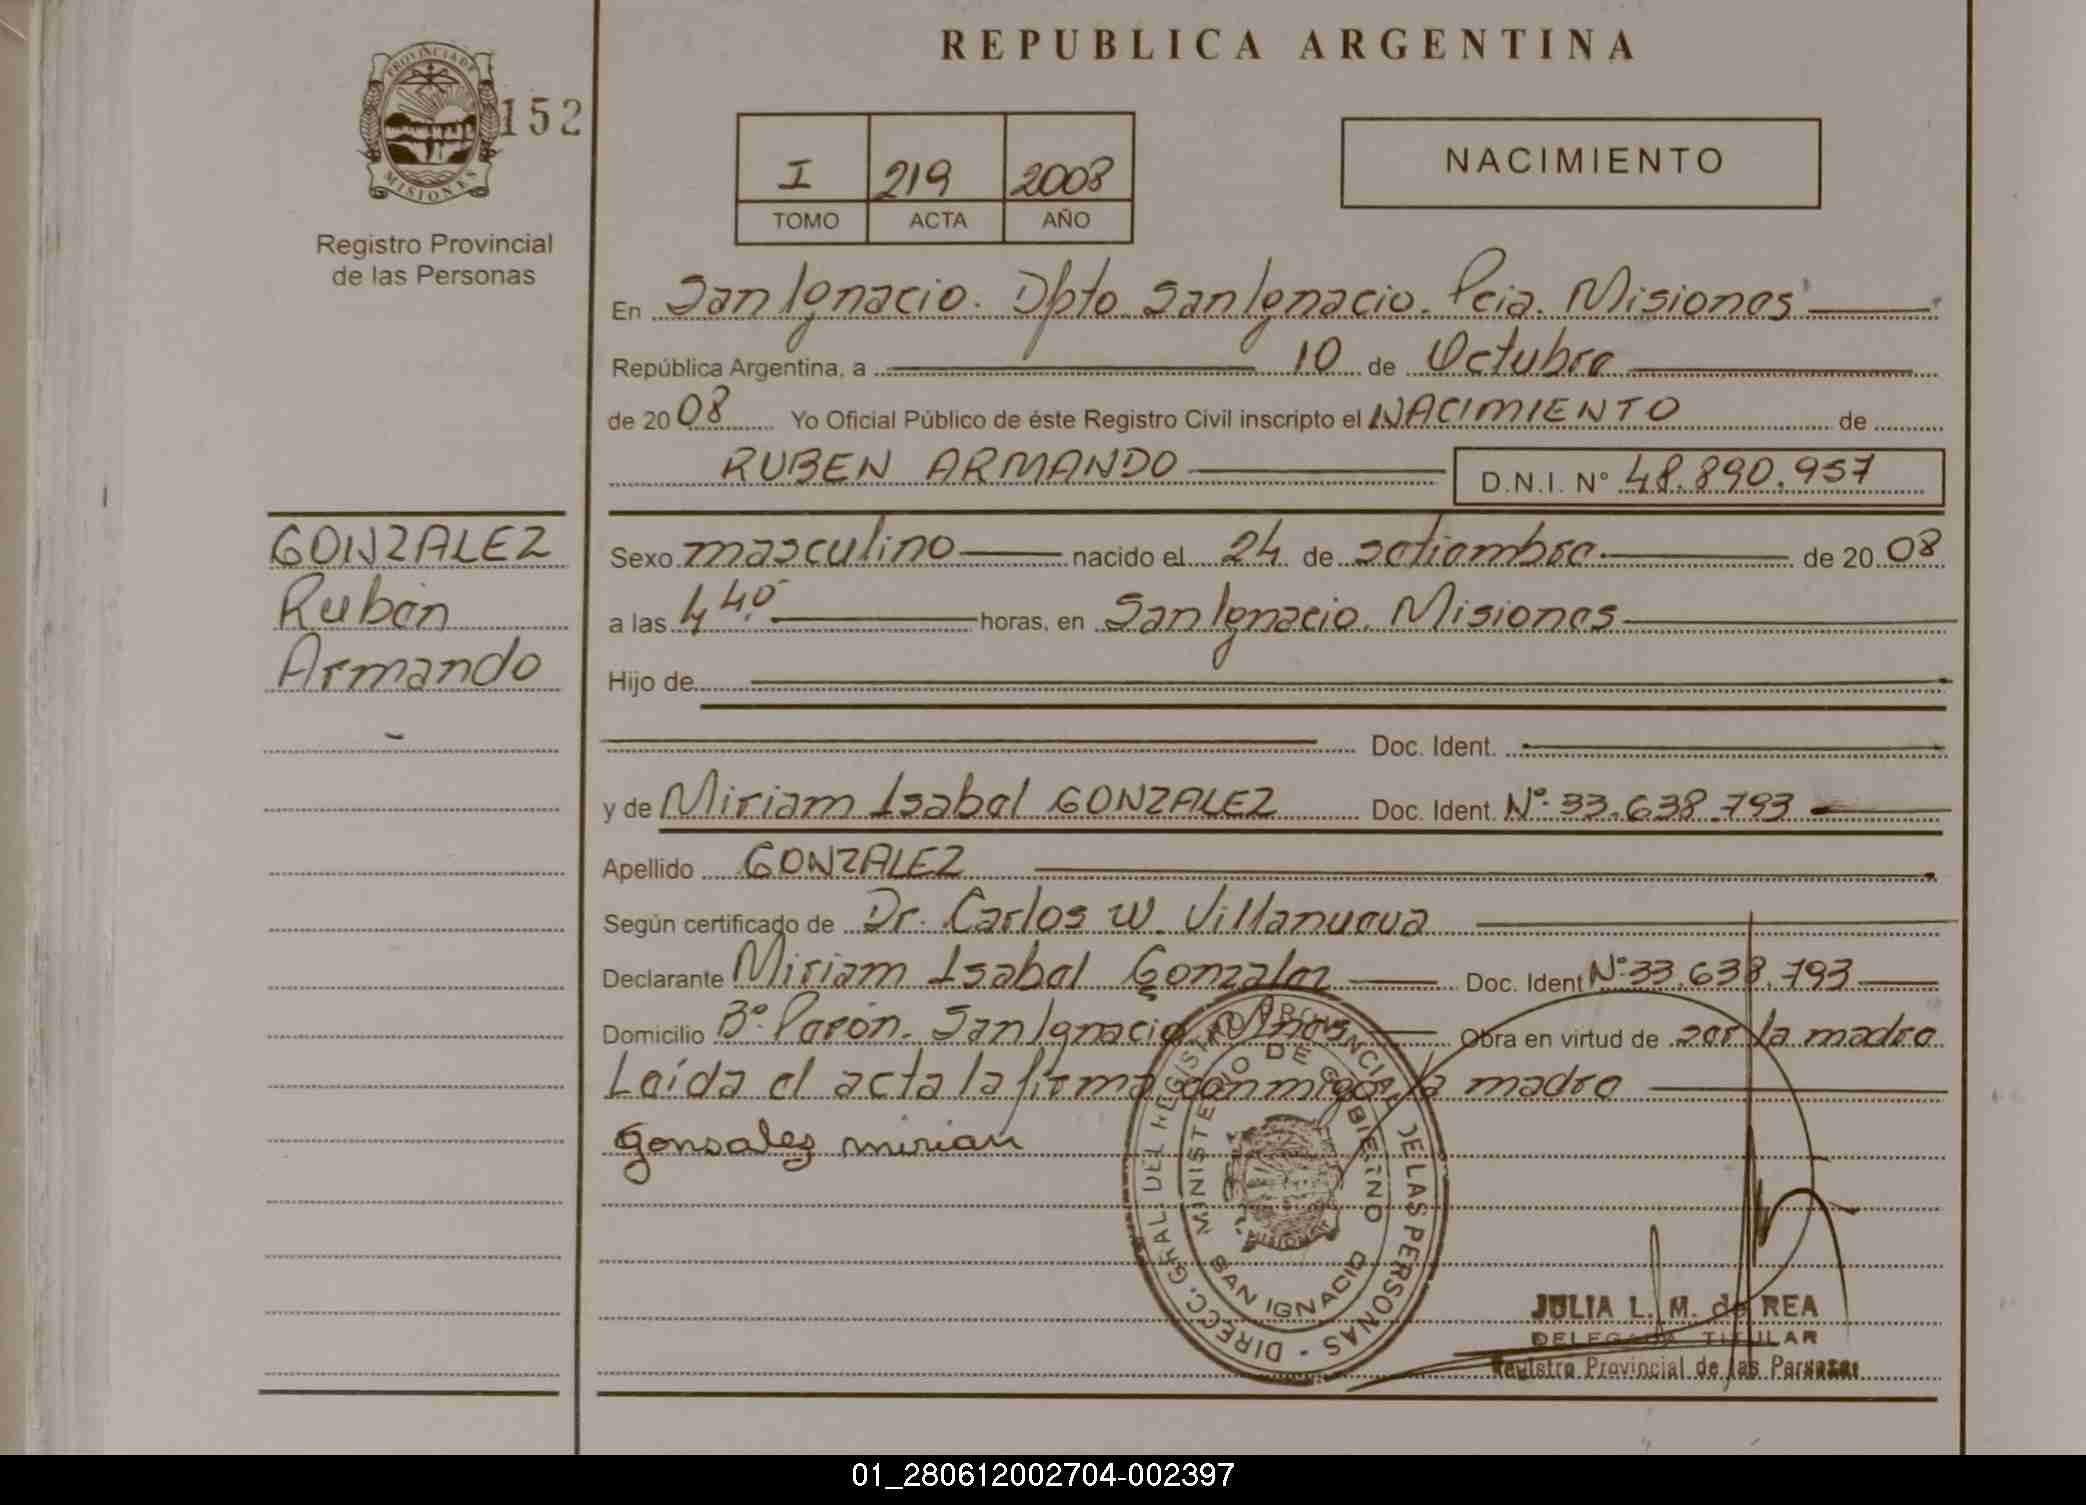 REPUBLICA ARGENTINA
PROVINCIA DE
MISIONES
152
Registro Provincial
de las Personas
I 219 2008
TOMO ACTA AÑO
NACIMIENTO
En San Ignacio. Dpto. San Ignacio. Pcia. Misiones
República Argentina, a 10 de Octubre
de 2008 Yo Oficial Público de éste Registro Civil inscripto el NACIMIENTO de
RUBEN ARMANDO D.N.I. N° 48.890.957
GONZALEZ
Rubén
Armando
Sexo masculino nacido el 24 de setiembre de 2008
a las 4,40 horas, en San Ignacio. Misiones
Hijo de
Doc. Ident.
y de Miriam Isabel GONZALEZ Doc. Ident. N°. 33.638.793
Apellido GONZALEZ
Según certificado de Dr. Carlos W. Villanueva
Declarante Miriam Isabel Gonzalez Doc. Ident N°. 33.638.793
Domicilio B°. Perón. San Ignacio. Mnes Obra en virtud de ser la madre
Leída el acta la firma conmigo la madre
Gonsales mirian
DIRECC. GRAL. DEL REGISTRO PROVINCIAL DE LAS PERSONAS -
MINISTERIO DE GOBIERNO
MISIONES
SAN IGNACIO
JULIA L. M. de REA
DELEGADA TITULAR
Registro Provincial de las Personas
01_280612002704-002397